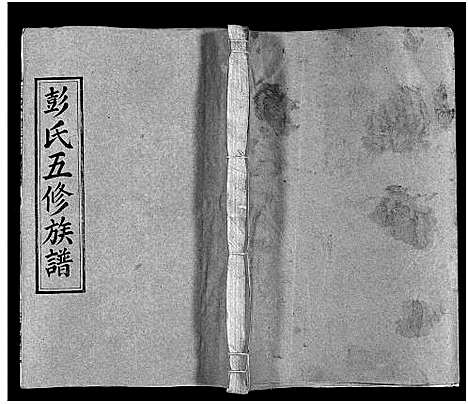 彭氏五修族譜